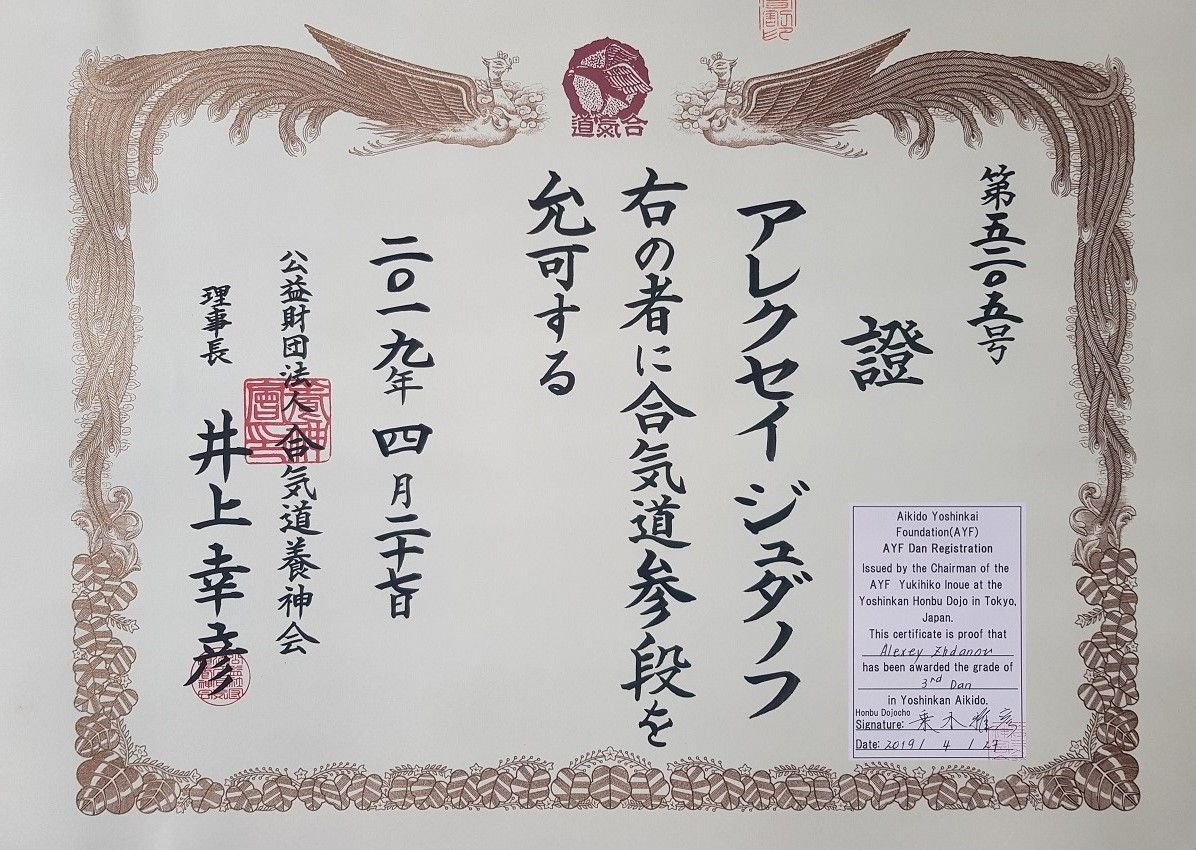 道氣合
第五二〇五号
證
アレクセイ ジュダノフ
右の者に合気道参段を
允可する
二〇一九年 四月二十七日
公益財団法人 合気道養神会
理事長 井上幸彦
Aikido Yoshinkai
Foundation(AYF)
AYF Dan Registration
Issued by the Chairman of the
AYF Yukihiko Inoue at the
Yoshinkan Honbu Dojo in Tokyo,
Japan.
This certificate is proof that
Alexey Zhdanov
has been awarded the grade of
3rd Dan
in Yoshinkan Aikido.
Honbu Dojocho
Signature:
Date: 2019 / 4 / 27